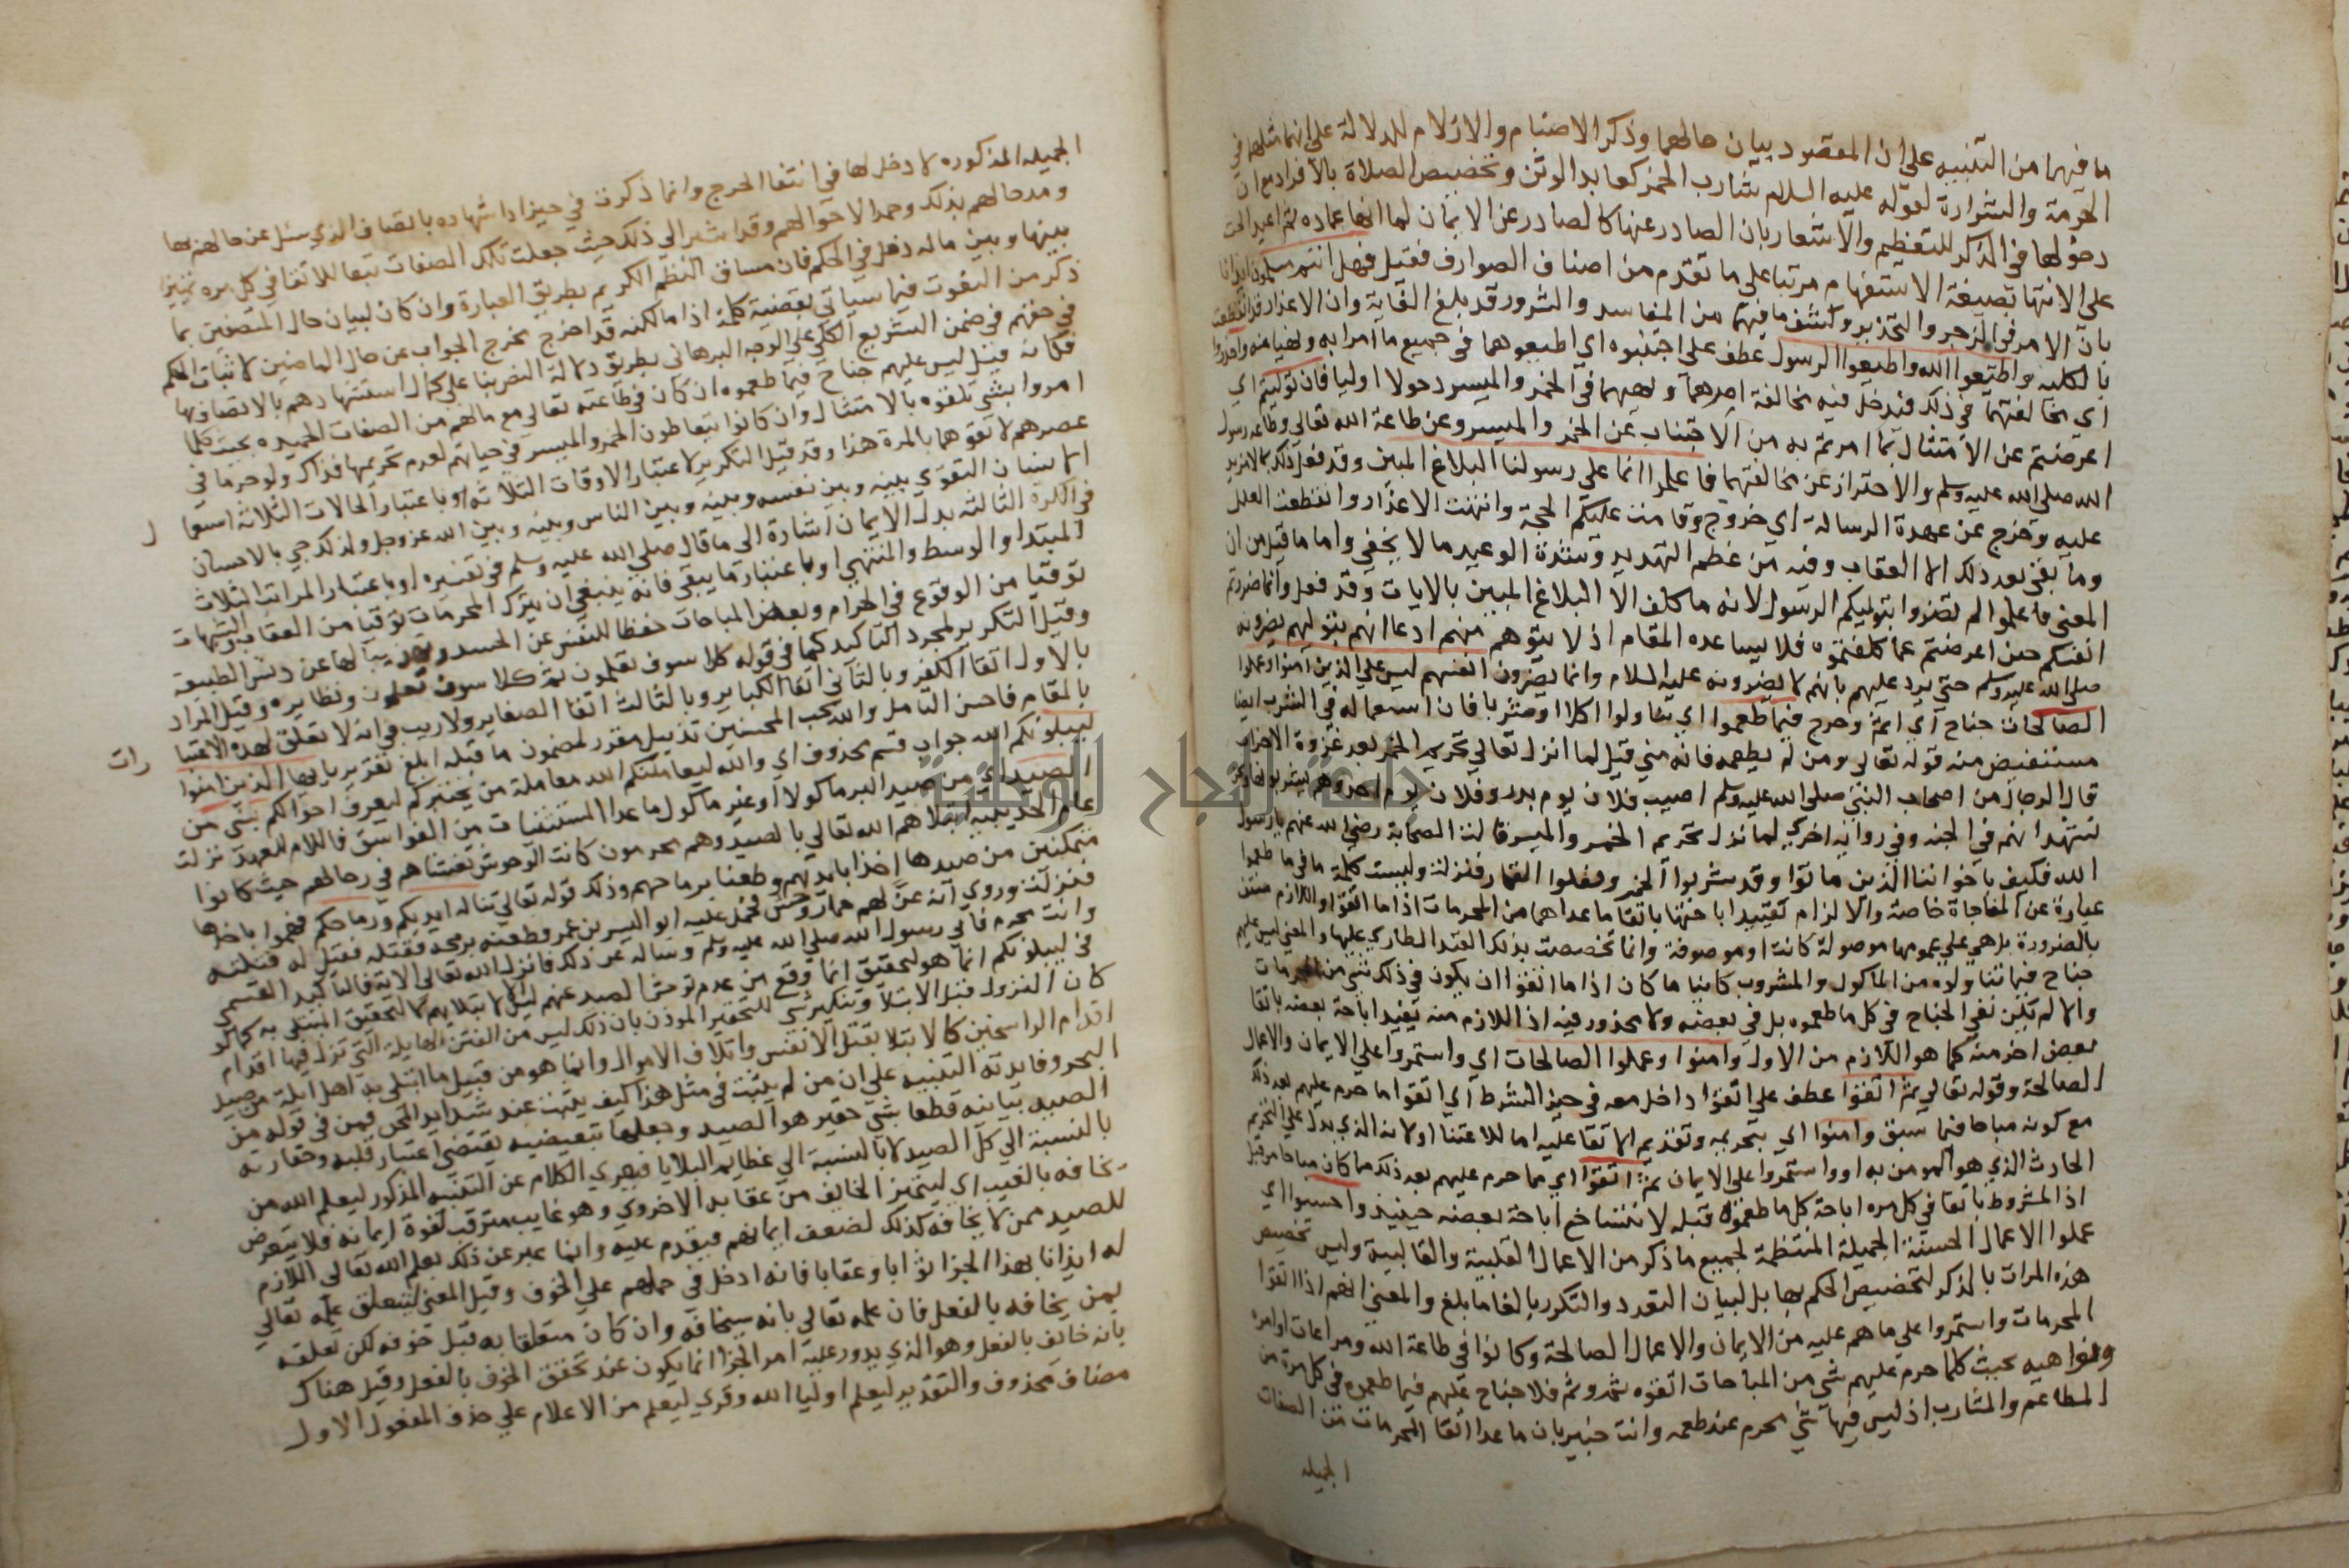 ما فيهما من التنبيه على ان المقصود بيان حالهما وذكر الاصنام والازلام للدلالة على انهما مثلهما في
الحرمة والشرارة لقوله عليه السلام شارب الخمر كعابد الوثن وتخصيص الصلاة بالافراد مع ان
دخولها في الذكر للتعظيم والاشعار بان الصادر عنها كالصادر عن الايمان لما انها عماده ثم اعيد الحث
على الانتها بصيغة الاستفهام مرتبا على ما تقدم من اصناف الصوارف فقيل فهل انتم منتهون ايذانا
بان الامر في الزجر والتحذير وكشف ما فيهما من المفاسد والشرور قد بلغ الغاية وان الاعذار قد انقطعت
بالكليه واطيعوا الله واطيعوا الرسول عطف على اجتنبوه اي اطيعوهما في جميع ما امرا به ونهيا عنه واحذروا
اي مخالفتهما في ذلك فيدخل فيه مخالفة امرهما ونهيهما في الخمر والميسر دخولا اوليا فان توليتم اي
اعرضتم عن الامتثال بما امرتم به من الاجتناب عن الخمر والميسر وعن طاعة الله تعالى وطاعة رسول
الله صلى الله عليه وسلم والاحتراز عن مخالفتهما فاعلموا انما على رسولنا البلاغ المبين وقد فعل ذلك بما لا مزيد
عليه وخرج عن عهدة الرسالة اي خروج وقامت عليكم الحجة وانتهت الاعذار وانقطعت العلل
وما بقي بعد ذلك الا العقاب وفيه من عظم التهديد وشدة الوعيد ما لا يخفى واما ما قيل من ان
المعنى فاعلموا انكم لم تضروا بتوليكم الرسول لانه ما كلف الا البلاغ المبين بالايات وقد فعل وانما ضررتم
انفسكم حين اعرضتم عما كلفتموه فلا يساعده المقام اذ لا يتوهم منهم ادعا انهم بتوليهم يضرونه
صلى الله عليه وسلم حتى يرد عليهم بانهم لا يضرونه عليه السلام وانما يضرون انفسهم ليس على الذين امنوا وعملوا
الصالحات جناح اي اثم وحرج فيما طعموا اي تناولوا اكلا او شربا فان استعماله في الشرب ايضا
مستفيض منه قوله تعالى ومن لم يطعمه فانه مني قيل لما انزل تعالى تحريم الخمر بعد غزوة الاحزاب
قال رجال من اصحاب النبي صلى الله عليه وسلم اصيب فلان يوم بدر وفلان يوم احد وهم يشربونها ونحن
نشهد انهم في الجنة وفي رواية اخرى لما نزل تحريم الخمر والميسر قالت الصحابة رضي الله عنهم يا رسول
الله فكيف باخواننا الذين ماتوا وقد شربوا الخمر وفعلوا القمار فنزلت وليست كلمة ما في ما طعموا
عبارة عن المفاجاة خاصة والا لزم تقييد اباحتها باتقا ما عداهما من المحرمات اذا ما اتقوا واللازم منتف
بالضرورة بل هي على عمومها موصولة كانت او موصوفة وانما تخصصت بذلك القيد الطاري عليها والمعنى ليس عليهم
جناح فيما تناولوه من الماكول والمشروب كاينا ما كان اذا ما اتقوا ان يكون في ذلك شي من المحرمات
والا لم يكن نفي الجناح في كل ما طعموه بل في بعضه ولا محذور فيه اذ اللازم منه تقييد اباحة بعضه باتقا
بعض اخر منه كما هو اللازم من الاول وامنوا وعملوا الصالحات اي واستمروا على الايمان والاعمال
الصالحة وقوله تعالى ثم اتقوا عطف على اتقوا داخل معه في حيز الشرط اي اتقوا ما حرم عليهم بعد ذلك
مع كونه مباحا فيما سبق وامنوا اي بتحريمه وتقديم الاتقا عليه اما للاعتنا او لانه الذي يدل على التحريم
الحادث الذي هو المومن به او واستمروا على الايمان ثم اتقوا اي مما حرم عليهم بعد ذلك مما كان مباحا من قبل
اذ المشروط باتقا في كل مره اباحة كل ما طعموه قبله لا انتساخ اباحة بعضه حينيذ واحسنوا اي
عملوا الاعمال الحسنة الجميلة المنتظمة لجميع ما ذكر من الاعمال القلبية والقالبية وليس تخصيص
هذه المرات بالذكر لتخصيص الحكم بها بل لبيان التعدد والتكرر بالغا ما بلغ والمعنى انهم اذا اتقوا
المحرمات واستمروا على ما هم عليه من الايمان والاعمال الصالحة وكانوا في طاعة الله ومراعات اوامره
ونواهيه بحيث كلما حرم عليهم شي من المباحات اتقوه ثم وثم فلا جناح عليهم فيما طعموه في كل مرة من
المطاعم والمشارب اذ ليس فيها شي محرم عند طعمه وانت خبير بان ما عدا اتقا المحرمات من الصفات
الجميله
الجميله المذكوره لا دخل لها في انتفا الحرج وانما ذكرت في حيز اذا شهاده باتصاف الذي سئل عن حالهم بها
ومدحا لهم بذلك وحمدا لاحوالهم وقد اشير الى ذلك حيث جعلت تلك الصفات تبعا للاتقا في كل مره تمييزا
بينها وبين ما له دخل في الحكم فان مساق النظم الكريم بطريق العبارة وان كان لبيان حال المتصفين بما
ذكر من النعوت فيما سياتي بقضية كلمة اذا ما لكنه قد اخرج مخرج الجواب عن حال الماضين لاثبات الحكم
في حقهم في ضمن التشريع الكلي على الوجه البرهاني بطريق دلالة النص بنا على كمال اشتهارهم بالاتصاف بها
فكانه قيل ليس عليهم جناح فيما طعموه ان كان في طاعته تعالى مع مالهم من الصفات الحميده بحيث كلما
امروا بشي تلقوه بالامتثال وان كانوا يتعاطون الخمر والميسر في حياتهم لعدم تحريمها فذاك ولو حرما في
عصرهم لاتقوهما بالمرة هذا وقد قيل التكرير لاعتبار الاوقات الثلاثه او باعتبار الحالات الثلاثة استعما
ل
الانسان التقوى بينه وبين نفسه وبينه وبين الناس وبينه وبين الله عز وجل ولذلك جي بالاحسان
في الكرة الثالثه بدل الايمان اشارة الى ما قال صلى الله عليه وسلم في تفسيره او باعتبار المراتب الثلاث
المبتدا والوسط والمنتهي او باعتبار ما يبقى فانه ينبغي ان يترك المحرمات توقيا من العقاب والشبهات
توقيا من الوقوع في الحرام وبعض المباحات حفظا للنفس عن الخسه وتهذيبا لها عن دنس الطبيعة
وقيل التكرير لمجرد التاكيد كما في قوله كلا سوف تعلمون ثم كلا سوف تعلمون ونظايره وقيل المراد
بالاول اتقا الكفر وبالثاني اتقا الكباير وبالثالث اتقا الصغاير ولا ريب في انه لا تعلق لهذه الاعتبا
رات
بالمقام فاحسن التامل والله يحب المحسنين تذييل مقرر لمضمون ما قبله ابلغ تقرير يا ايها الذين امنوا
ليبلونكم الله جواب قسم محذوف اي والله ليعاملنكم الله معاملة من يختبركم ليعرف احوالكم بشي من
الصيد اي من صيد البر ماكولا او غير ماكول ما عدا المستثنيات من الفواسق فاللام للعهد نزلت
عام الحديبية ابتلاهم الله تعالى بالصيد وهم محرمون كانت الوحوش تغشاهم في رحالهم حيث كانوا
متمكنين من صيدها اخذا بايديهم وطعنا برماحهم وذلك قوله تعالى تناله ايديكم ورماحكم فهموا باخذها
فنزلت وروي انه عن لهم حمار وحش فحمل عليه ابو اليسر بن عمر فطعنه برمحه فقتله فقيل له قتلته
وانت محرم فاتى رسول الله صلى الله عليه وسلم وساله عن ذلك فانزل الله تعالى الاية فالتاكيد القسمي
في ليبلونكم انما هو لتحقيق انما وقع من عدم توحش الصيد عنهم ليس الا لابتلايهم لا لتحقيق المبتلى به كما لو
كان النزول قبل الابتلا وتنكير شي للتحقير الموذن بان ذلك ليس من الفتن الهايلة التي تزل فيها اقدام
اقدام الراسخين كالابتلا بقتل الانفس واتلاف الاموال وانما هو من قبيل ما ابتلي به اهل ايلة من صيد
البحر وفايدته التنبيه على ان من لم يثبت في مثل هذا كيف يثبت عند شدايد المحن فمن في قوله من
الصيد بيانيه قطعا بشي حقير هو الصيد وجعلها تبعيضيه تقتضي اعتبار قلته وحقارته
بالنسبة الى كل الصيد لا بالنسبة الى عظايم البلايا فيعري الكلام عن التنبيه المذكور ليعلم الله من
يخافه بالغيب اي ليتميز الخايف من عقابه الاخروي وهو غايب مترقب لقوة ايمانه فلا يتعرض
للصيد ممن لا يخافه كذلك لضعف ايمانهم فيقدم عليه وانما عبر عن ذلك بعلم الله تعالى اللازم
له ايذانا بهذا الجزا ثوابا وعقابا فانه ادخل في حملهم على الخوف وقيل المعنى ليتعلق علمه تعالى
بمن يخافه بالفعل فان علمه تعالى بانه سيخافه وان كان متعلقا به قبل خوفه لكن تعلقه
بانه خايف بالفعل وهو الذي يدور عليه امر الجزا انما يكون عند تحقق الخوف بالفعل وقيل هناك
مضاف محذوف والتقدير ليعلم اوليا الله وقري ليعلم من الاعلام على حذف المفعول الاول
جامعة النجاح الوطنية